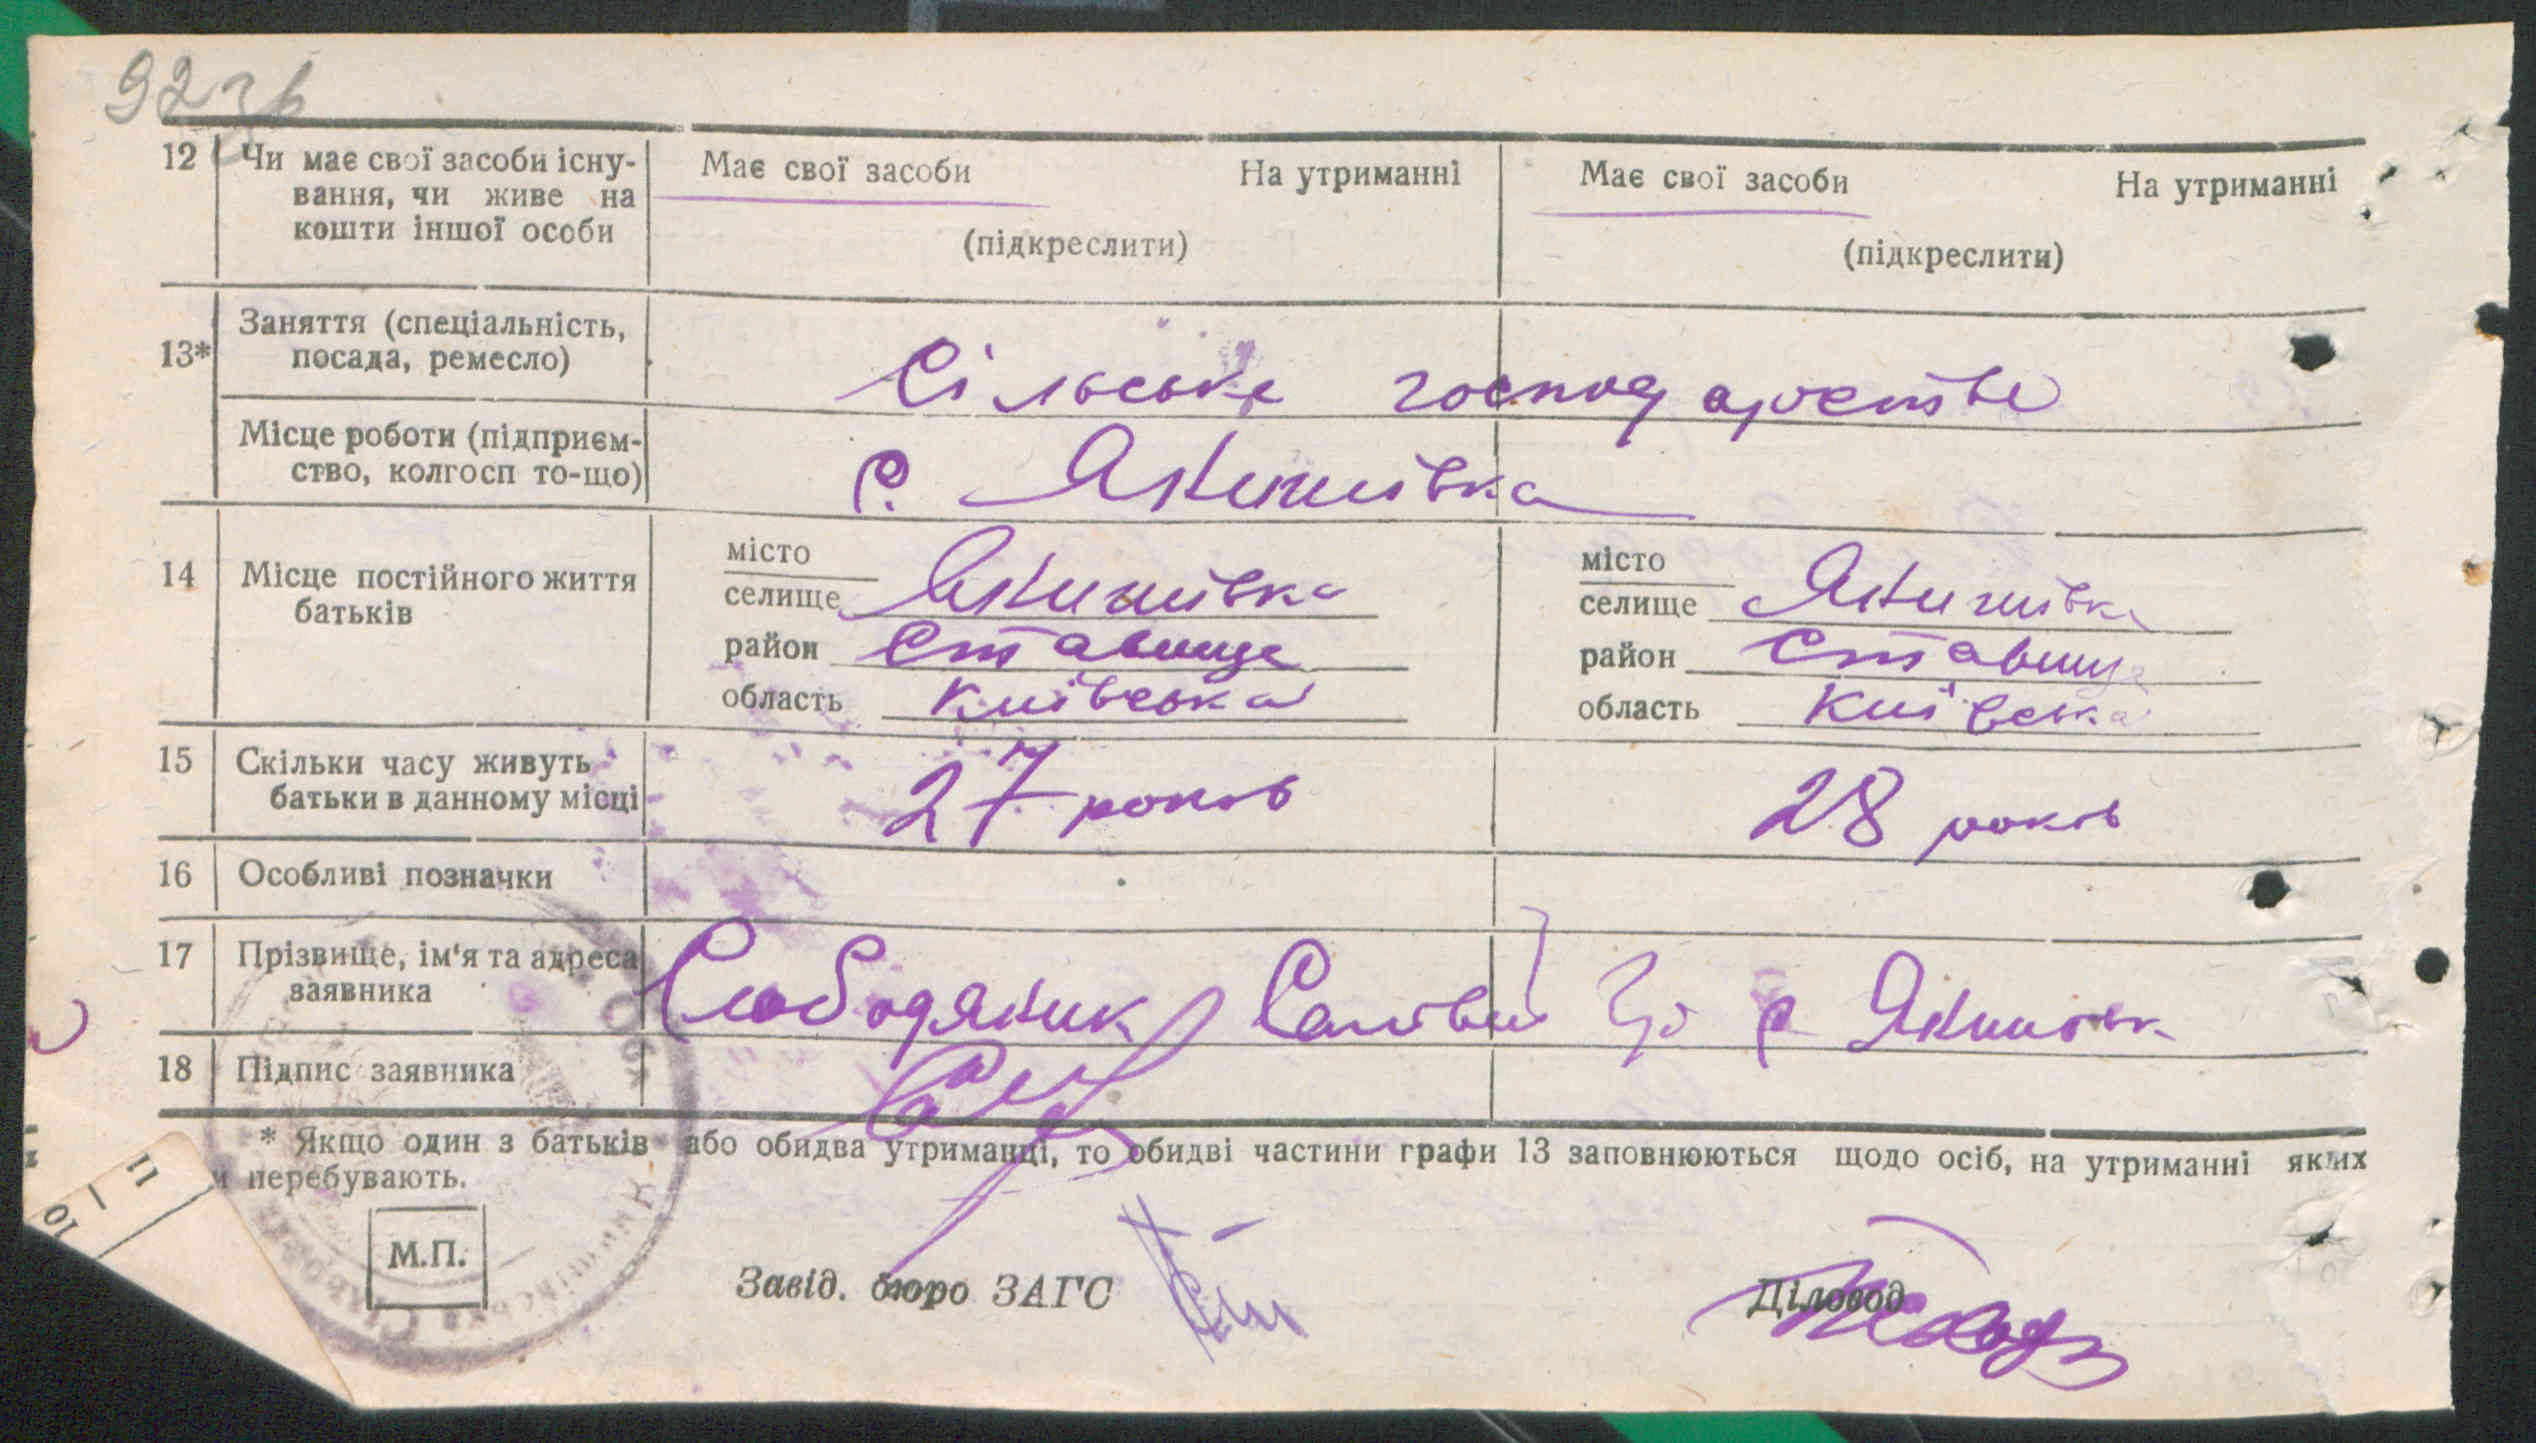 92зв
12 Чи має свої засоби існу- Має свої засоби На утриманні Має свої засоби На утриманні
вання, чи живе на
кошти іншої особи (підкреслити) (підкреслити)
Заняття (спеціальність,
13* посада, ремесло) Сільське господарство
Місце роботи (підприєм-
ство, колгосп то-що) с. Якимівка
14 Місце постійного життя місто місто
батьків селище Якимівка селище Якимівка
район Ставище район Ставище
область Київська область Київська
15 Скільки часу живуть 27 років 28 років
батьки в данному місці
16 Особливі позначки
17 Прізвище, ім'я та адреса Слободяник с
заявника
18 Підпис заявника
* Якщо один з батьків або обидва утриманці, то обидві частини графи 13 заповнюються щодо осіб, на утриманні яких
и перебувають.
11
10
М.П.
Завід. бюро ЗАГС Діловод